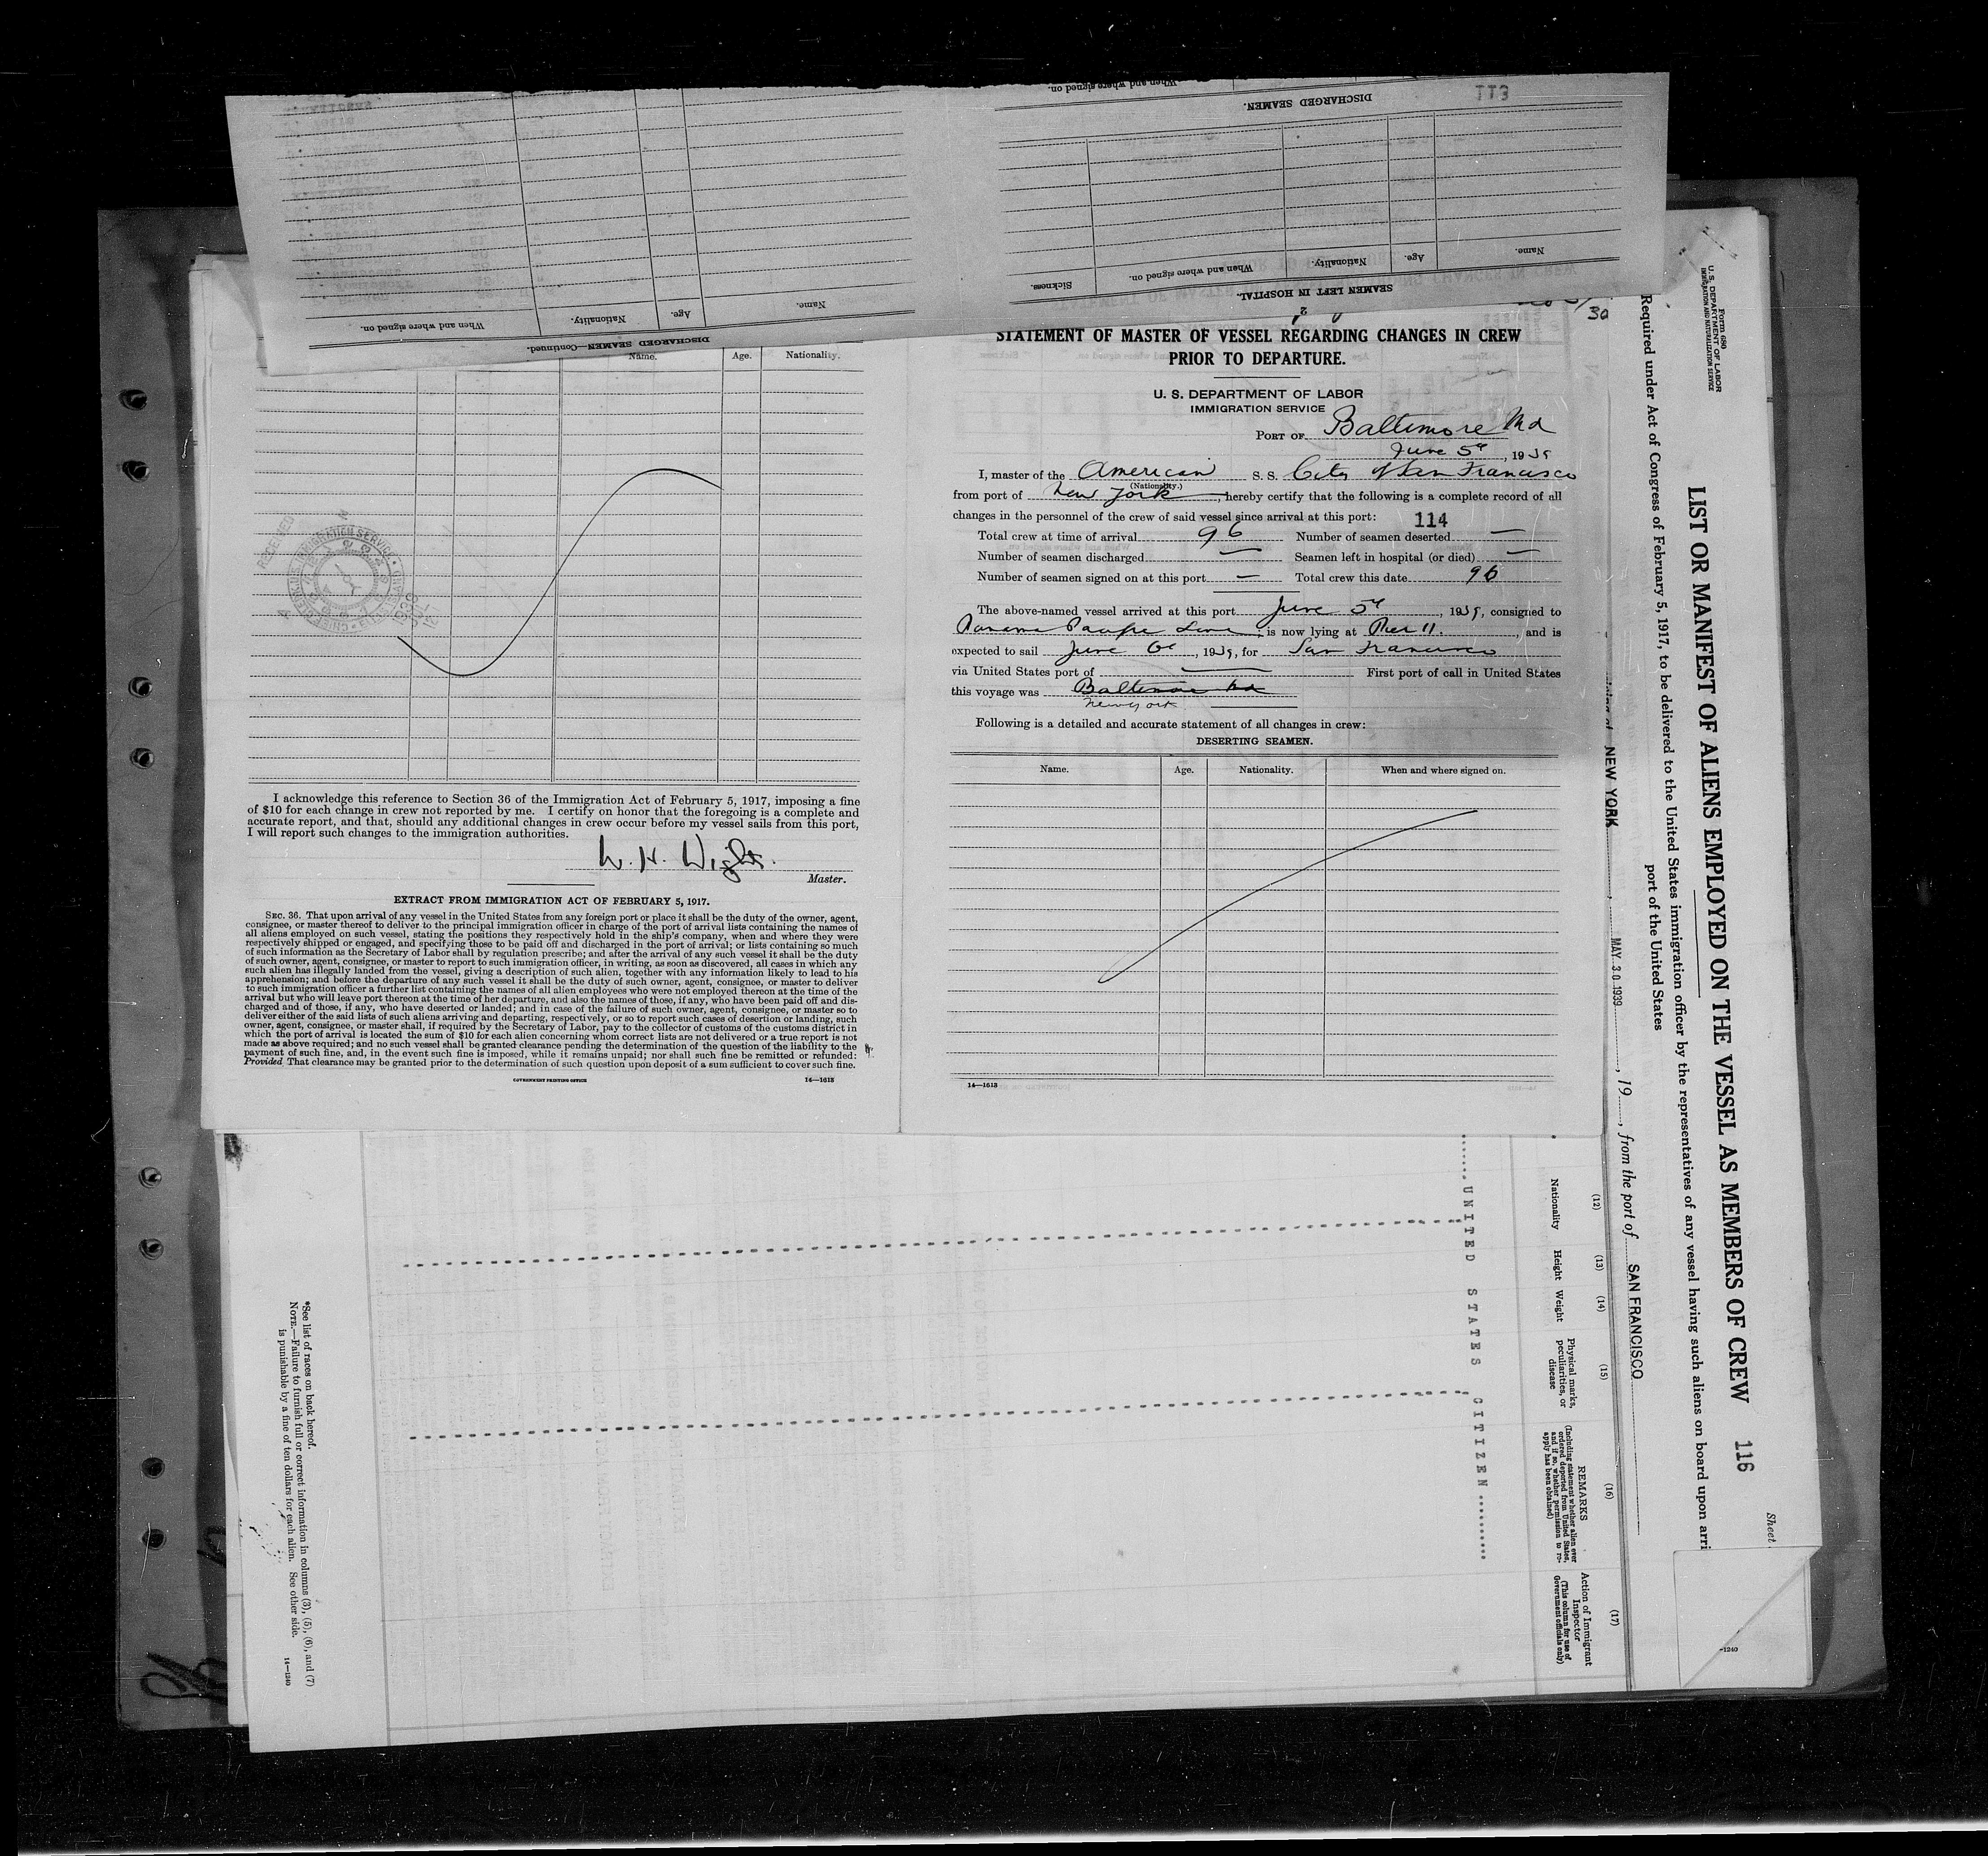 When and where signed on.
DISCHARGED SEAMEN.
113
Sickness.
When and where signed on.
Nationality.
Age.
Name.
SEAMEN LEFT IN HOSPITAL.
Name.
Age.
Nationality.
When and where signed on.
DISCHARGED SEAMEN—Continued.
Name.
Age.
Nationality.
RECEIVED
I acknowledge this reference to Section 36 of the Immigration Act of February 5, 1917, imposing a fine
of $10 for each change in crew not reported by me. I certify on honor that the foregoing is a complete and
accurate report, and that, should any additional changes in crew occur before my vessel sails from this port,
I will report such changes to the immigration authorities.
W. H. Wight.
Master.
EXTRACT FROM IMMIGRATION ACT OF FEBRUARY 5, 1917.
SEC. 36. That upon arrival of any vessel in the United States from any foreign port or place it shall be the duty of the owner, agent,
consignee, or master thereof to deliver to the principal immigration officer in charge of the port of arrival lists containing the names of
all aliens employed on such vessel, stating the positions they respectively hold in the ship's company, when and where they were
respectively shipped or engaged, and specifying those to be paid off and discharged in the port of arrival; or lists containing so much
of such information as the Secretary of Labor shall by regulation prescribe; and after the arrival of any such vessel it shall be the duty
of such owner, agent, consignee, or master to report to such immigration officer, in writing, as soon as discovered, all cases in which any
such alien has illegally landed from the vessel, giving a description of such alien, together with any information likely to lead to his
apprehension; and before the departure of any such vessel it shall be the duty of such owner, agent, consignee, or master to deliver
to such immigration officer a further list containing the names of all alien employees who were not employed thereon at the time of the
arrival but who will leave port thereon at the time of her departure, and also the names of those, if any, who have been paid off and dis-
charged and of those, if any, who have deserted or landed; and in case of the failure of such owner, agent, consignee, or master so to
deliver either of the said lists of such aliens arriving and departing, respectively, or so to report such cases of desertion or landing, such
owner, agent, consignee, or master shall, if required by the Secretary of Labor, pay to the collector of customs of the customs district in
which the port of arrival is located the sum of $10 for each alien concerning whom correct lists are not delivered or a true report is not
made as above required; and no such vessel shall be granted clearance pending the determination of the question of the liability to the
payment of such fine, and, in the event such fine is imposed, while it remains unpaid; nor shall such fine be remitted or refunded:
Provided That clearance may be granted prior to the determination of such question upon deposit of a sum sufficient to cover such fine.
GOVERNMENT PRINTING OFFICE 14—1613
30
STATEMENT OF MASTER OF VESSEL REGARDING CHANGES IN CREW
PRIOR TO DEPARTURE.
U. S. DEPARTMENT OF LABOR
IMMIGRATION SERVICE
PORT OF Baltimore Md
June 5th, 1939
I, master of the American S. S. City of San Francisco
(Nationality.)
from port of New York hereby certify that the following is a complete record of all
changes in the personnel of the crew of said vessel since arrival at this port: 114
Total crew at time of arrival 96 Number of seamen deserted —
Number of seamen discharged — Seamen left in hospital (or died) —
Number of seamen signed on at this port — Total crew this date 96
The above-named vessel arrived at this port June 5th, 1939, consigned to
Panama Pacific Line, is now lying at Pier 11., and is
expected to sail June 6th, 1939, for San Francisco
via United States port of — First port of call in United States
this voyage was Baltimore Md
New York
Following is a detailed and accurate statement of all changes in crew:
DESERTING SEAMEN.
Name. Age. Nationality. When and where signed on.
14—1613
Form 680
U. S. DEPARTMENT OF LABOR
IMMIGRATION AND NATURALIZATION SERVICE
LIST OR MANIFEST OF ALIENS EMPLOYED ON THE VESSEL AS MEMBERS OF CREW
116
Sheet
Required under Act of Congress of February 5, 1917, to be delivered to the United States immigration officer by the representatives of any vessel having such aliens on board upon arri
port of the United States
NEW YORK, MAY 30 1939, 19, from the port of SAN FRANCISCO
(12) (13) (14) (15) (16) (17)
Nationality
Height
Weight
Physical marks,
peculiarities, or
disease
REMARKS
(Including statement whether alien ever
ordered deported from United States,
and if so, whether permission to re-
apply has been obtained)
Action of Immigrant
Inspector
(This column for use of
Government officials only)
UNITED STATES CITIZEN
*See list of races on back hereof.
NOTE.—Failure to furnish full or correct information in columns (3), (5), (6), and (7)
is punishable by a fine of ten dollars for each alien. See other side.
14—1240
—1240